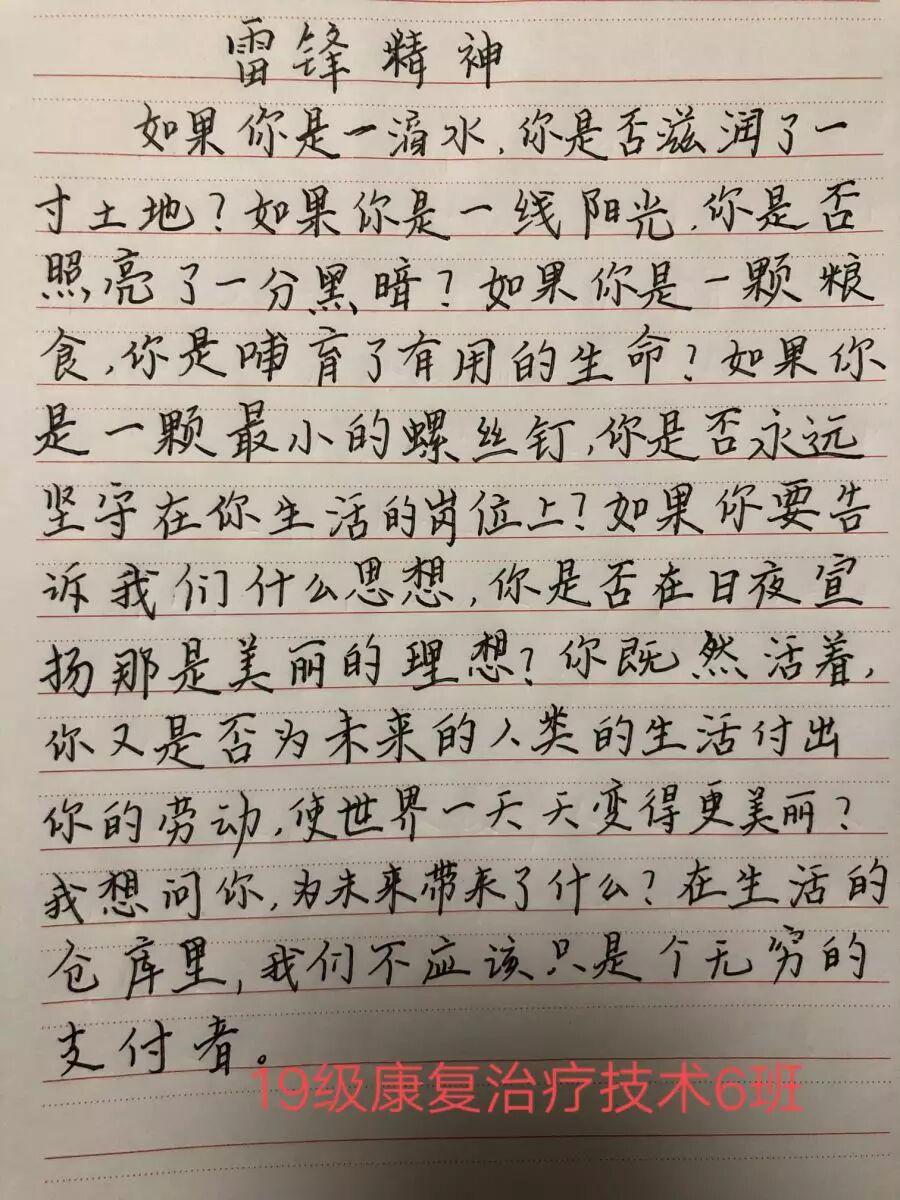 雷锋精神
如果你是一滴水,你是否滋润了一
寸土地?如果你是一线阳光,你是否
照亮了一分黑暗?如果你是一颗粮
食,你是哺育了有用的生命?如果你
是一颗最小的螺丝钉,你是否永远
坚守在你生活的岗位上?如果你要告
诉我们什么思想,你是否在日夜宣
扬那是美丽的理想?你既然活着,
你又是否为未来的人类的生活付出
你的劳动,使世界一天天变得更美丽?
我想问你,为未来带来了什么?在生活的
仓库里,我们不应该只是个无穷的
支付者。
19级康复治疗技术6班